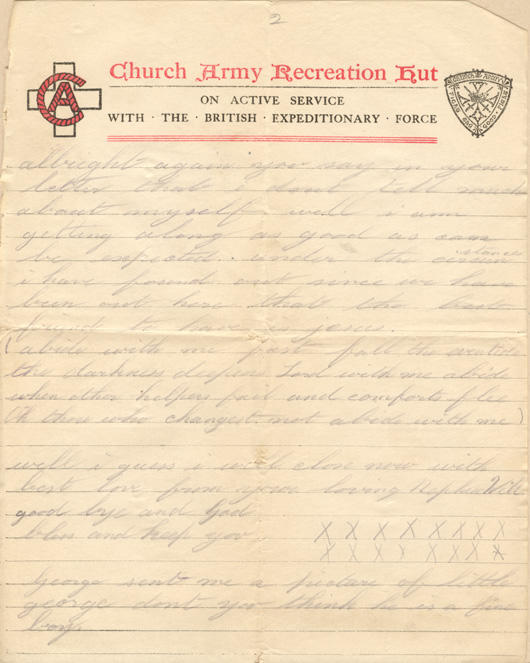 2
Church Army Recreation Hut
CA
ON ACTIVE SERVICE
WITH · THE · BRITISH · EXPEDITIONARY · FORCE
allright again you say in your
letter that i dont tell much
about myself well i am
getting along as good as can
be expected under the circum
stance
i have found out since we have
been out here that the best
friend to have is jesus.
(abide with me fast fall the eventide
the darkness deepens Lord with me abide
when other helpers fail and comforts flee
Oh thou who changest not abide with me)
well i guess i will close now with
best love from your loving Nephew
good bye and God
bless and keep you.
X X X X X X X X
X X X X X X X X
George sent me a picture of little
george dont you think he is a fine
boy.